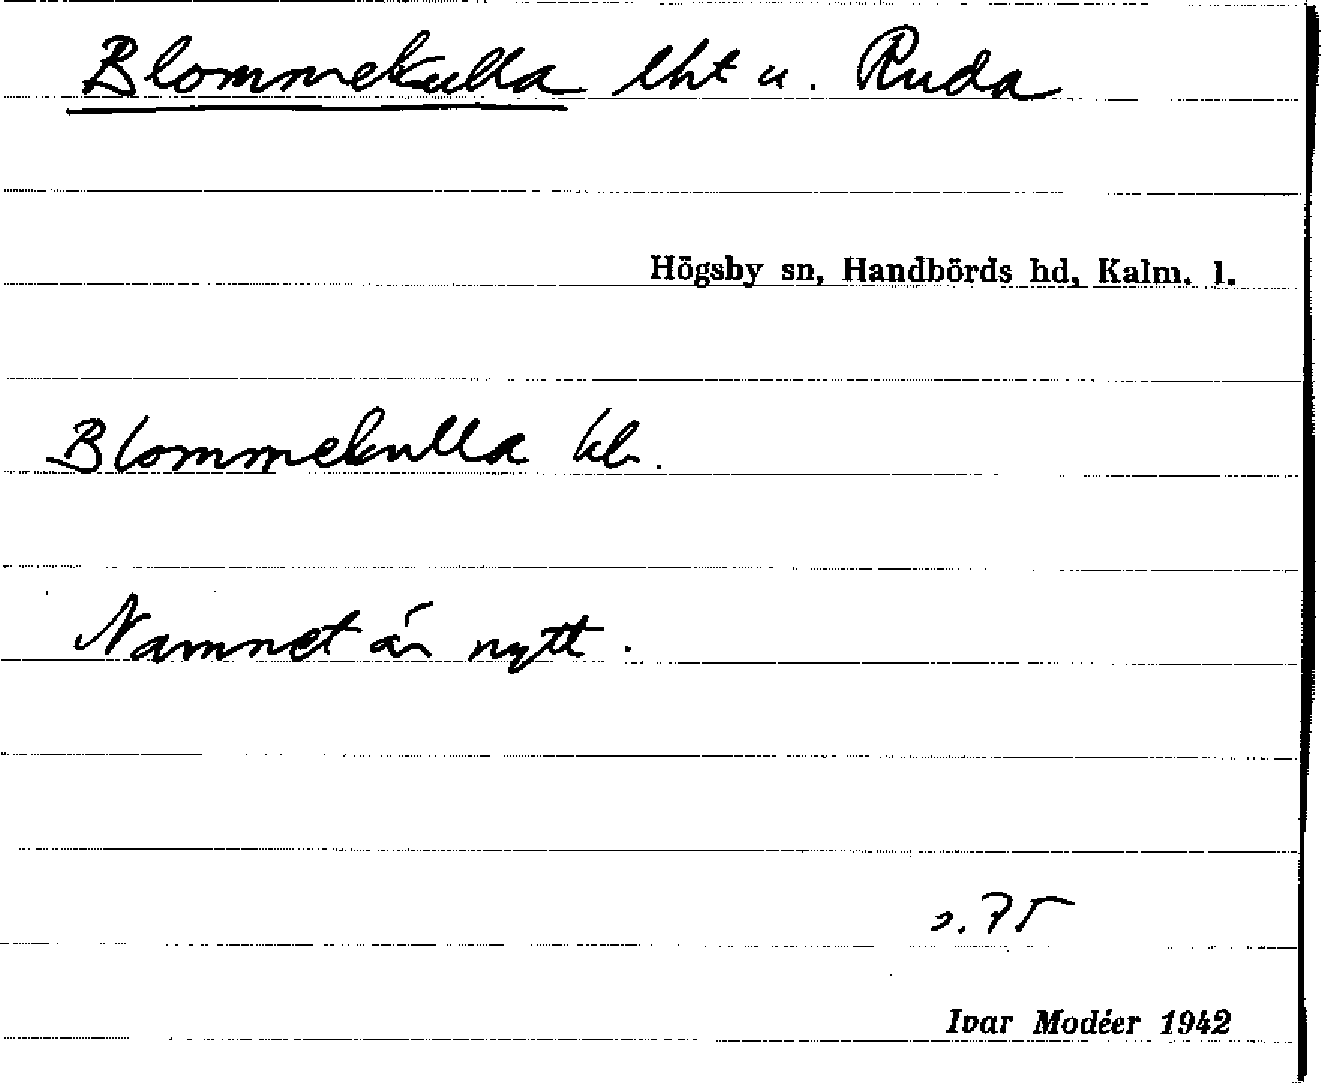 Blommekulla lht u. Ruda
Högsby sn, Handbörds hd, Kalm. l.
Blommekulla kb.
Namnet är nytt.
s. 75
Ivar Modéer 1942